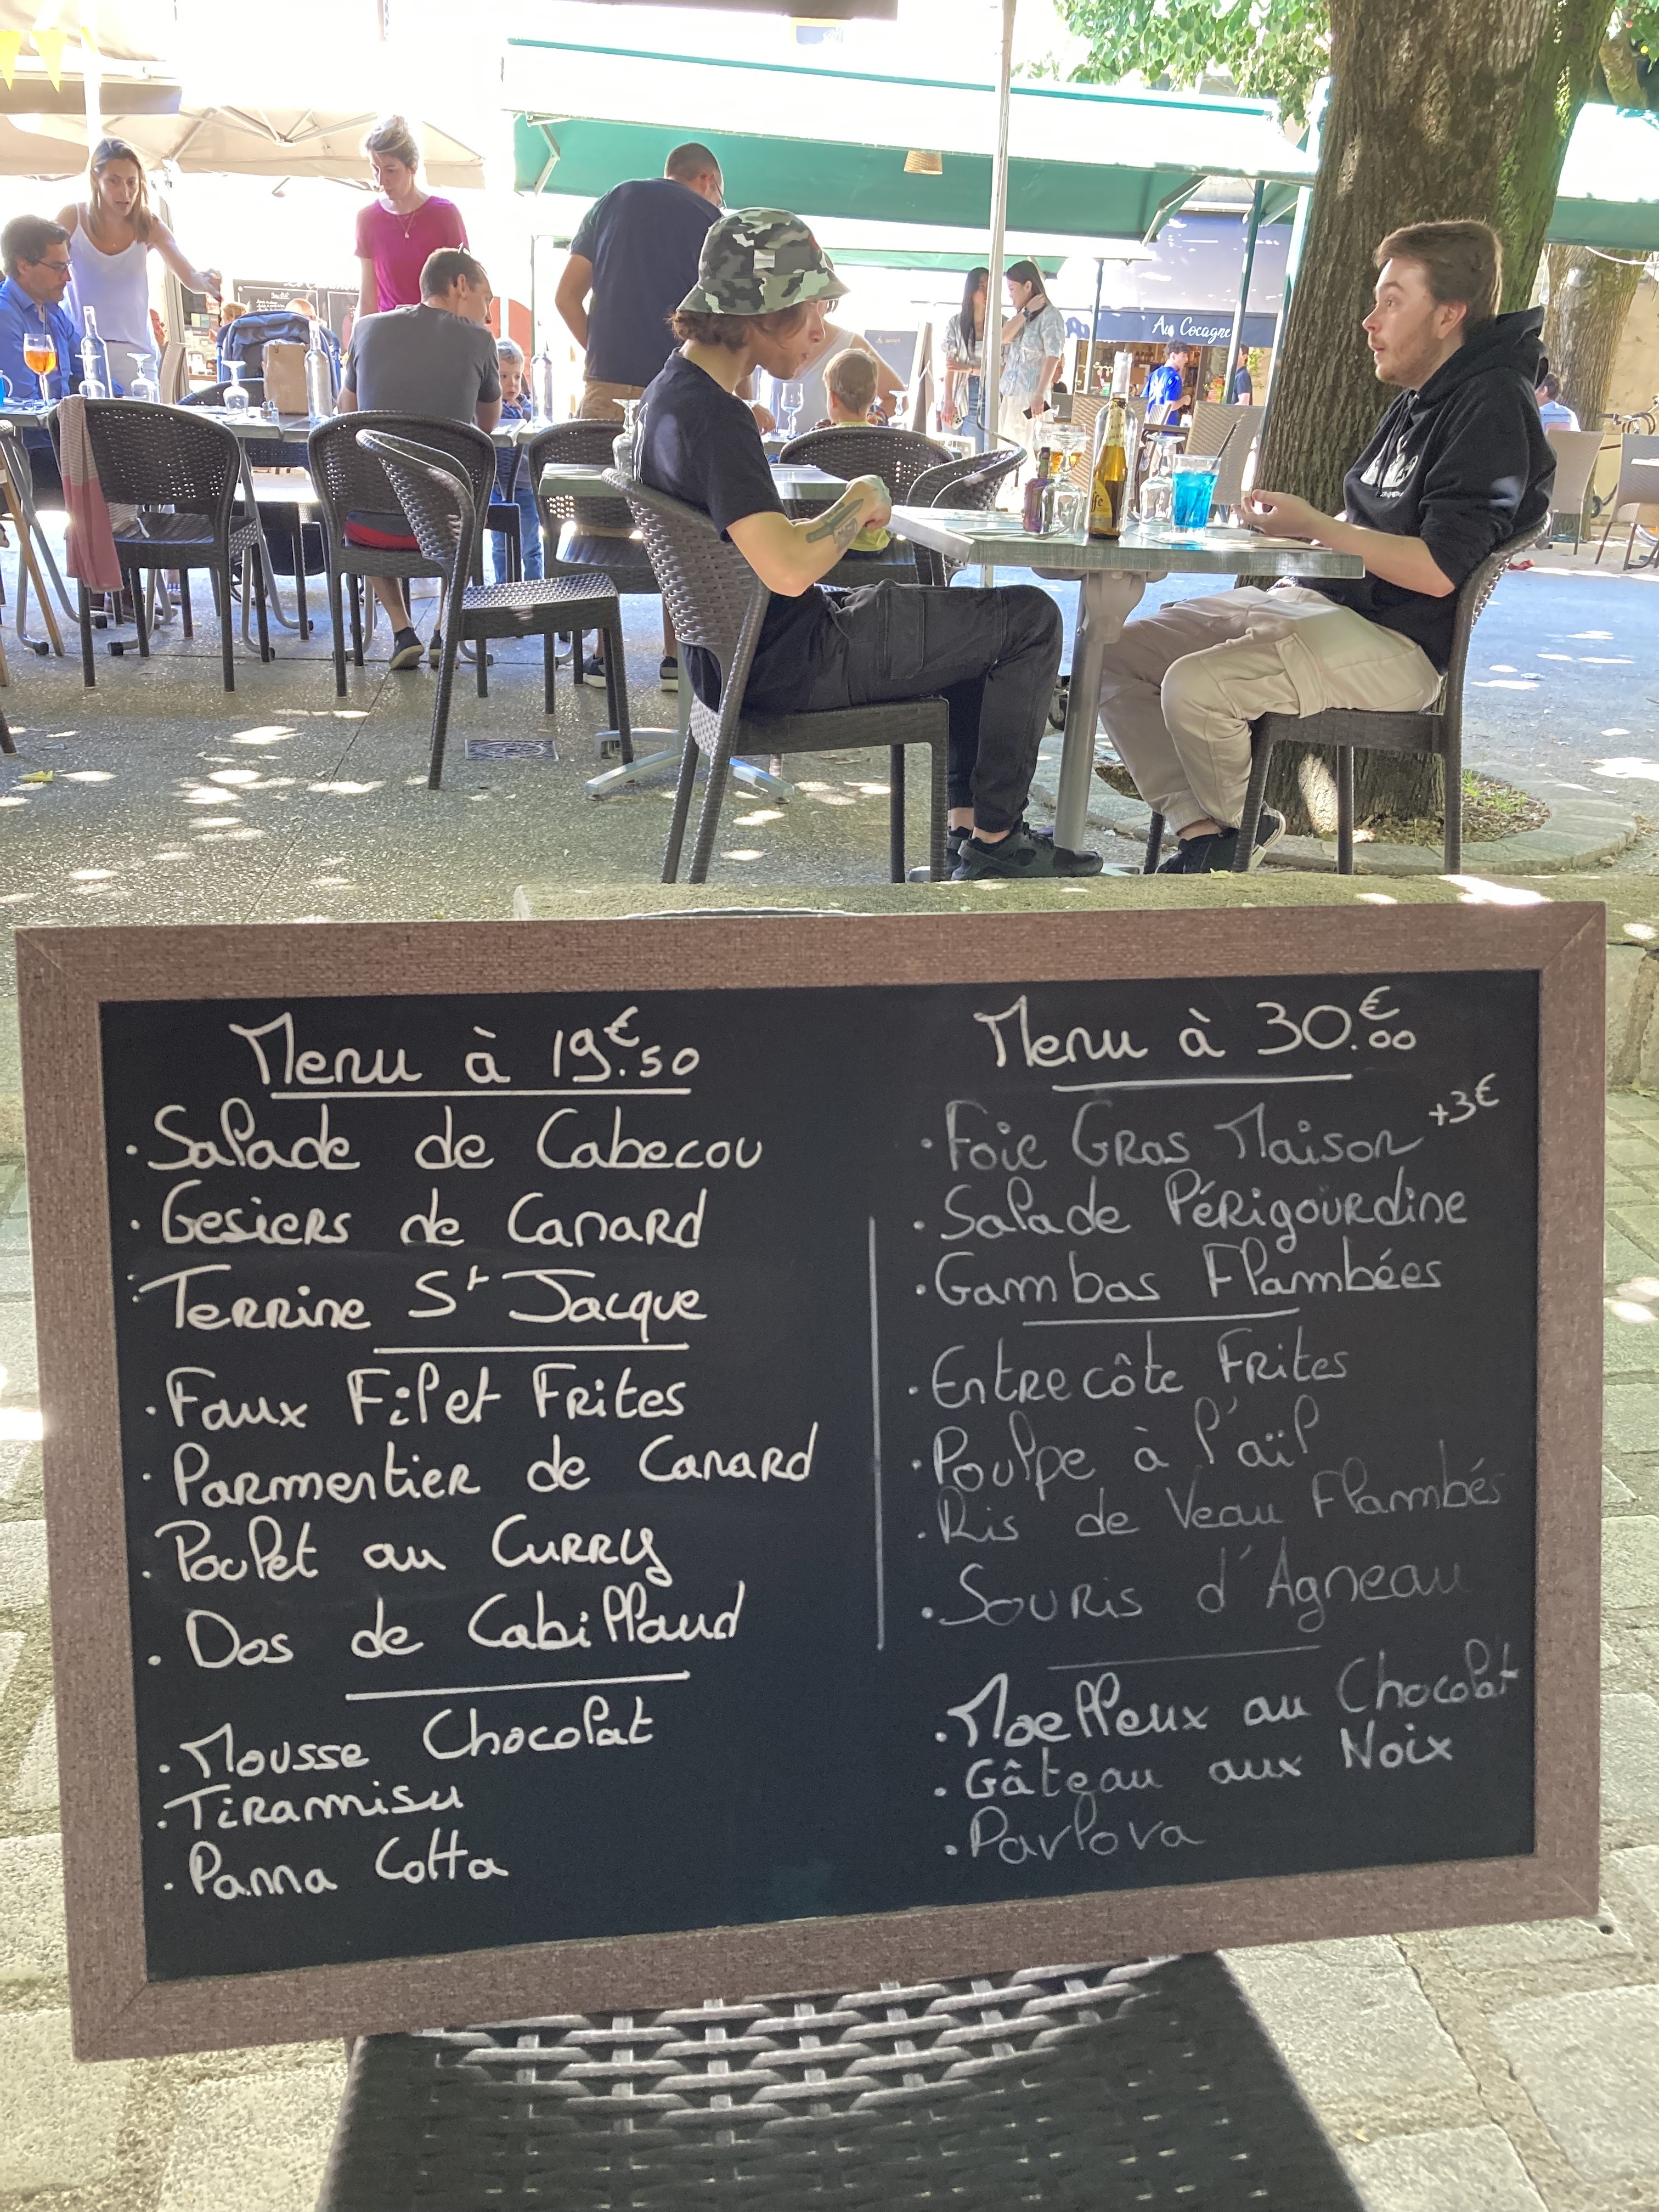 Au Cocagne
Menu à 19€.50
· Salade de Cabecou
· Gesiers de Canard
· Terrine St Jacque
· Faux Filet Frites
· Parmentier de Canard
· Poulet au Curry
· Dos de Cabillaud
· Mousse Chocolat
· Tiramisu
· Panna Cotta
Menu à 30€.00
· Foie Gras Maison +3€
· Salade Périgourdine
· Gambas Flambées
· Entrecôte Frites
· Poulpe à l'aïl
· Ris de Veau Flambés
· Souris d'Agneau
· Moelleux au Chocolat
· Gâteau aux Noix
· Pavlova